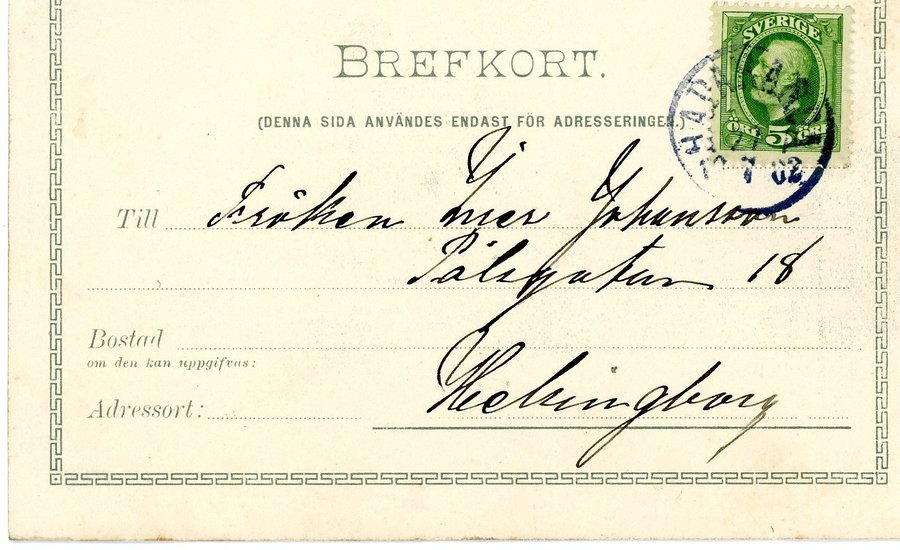 SVERIGE
BREFKORT.
ÖRE 5 ÖRE
7 02
(DENNA SIDA ANVÄNDES ENDAST FÖR ADRESSERINGEN.)
Till Fröken Johansson
Pålsgatan 18
Bostad
om den kan uppgifvas:
Adressort: Helsingborg